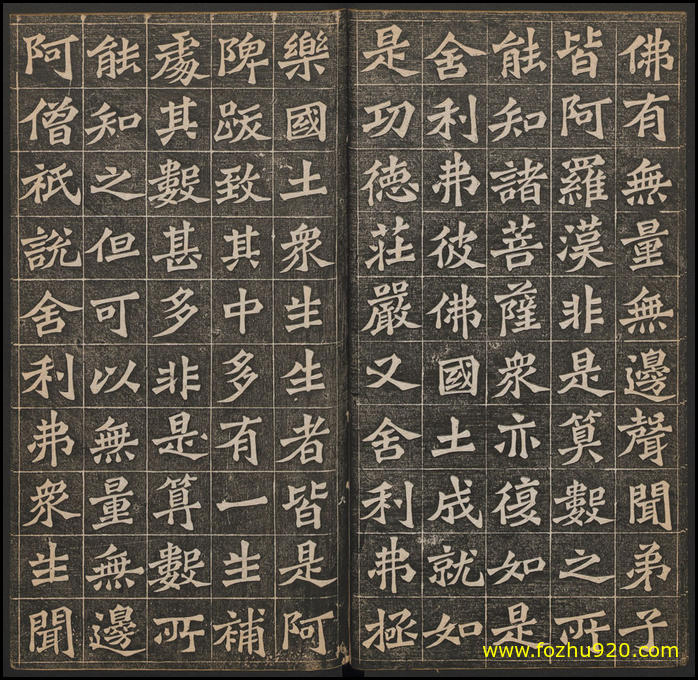 佛有無量無邊聲聞弟子
皆阿羅漢非是筭數之所
能知諸菩薩衆亦復如是
舍利弗彼佛國土成就如
是功德莊嚴又舍利弗極
樂國土衆生生者皆是阿
陴跋致其中多有一生補
處其數甚多非是算數所
能知之但可以無量無邊
阿僧祇說舍利弗衆生聞
www.fozhu920.com